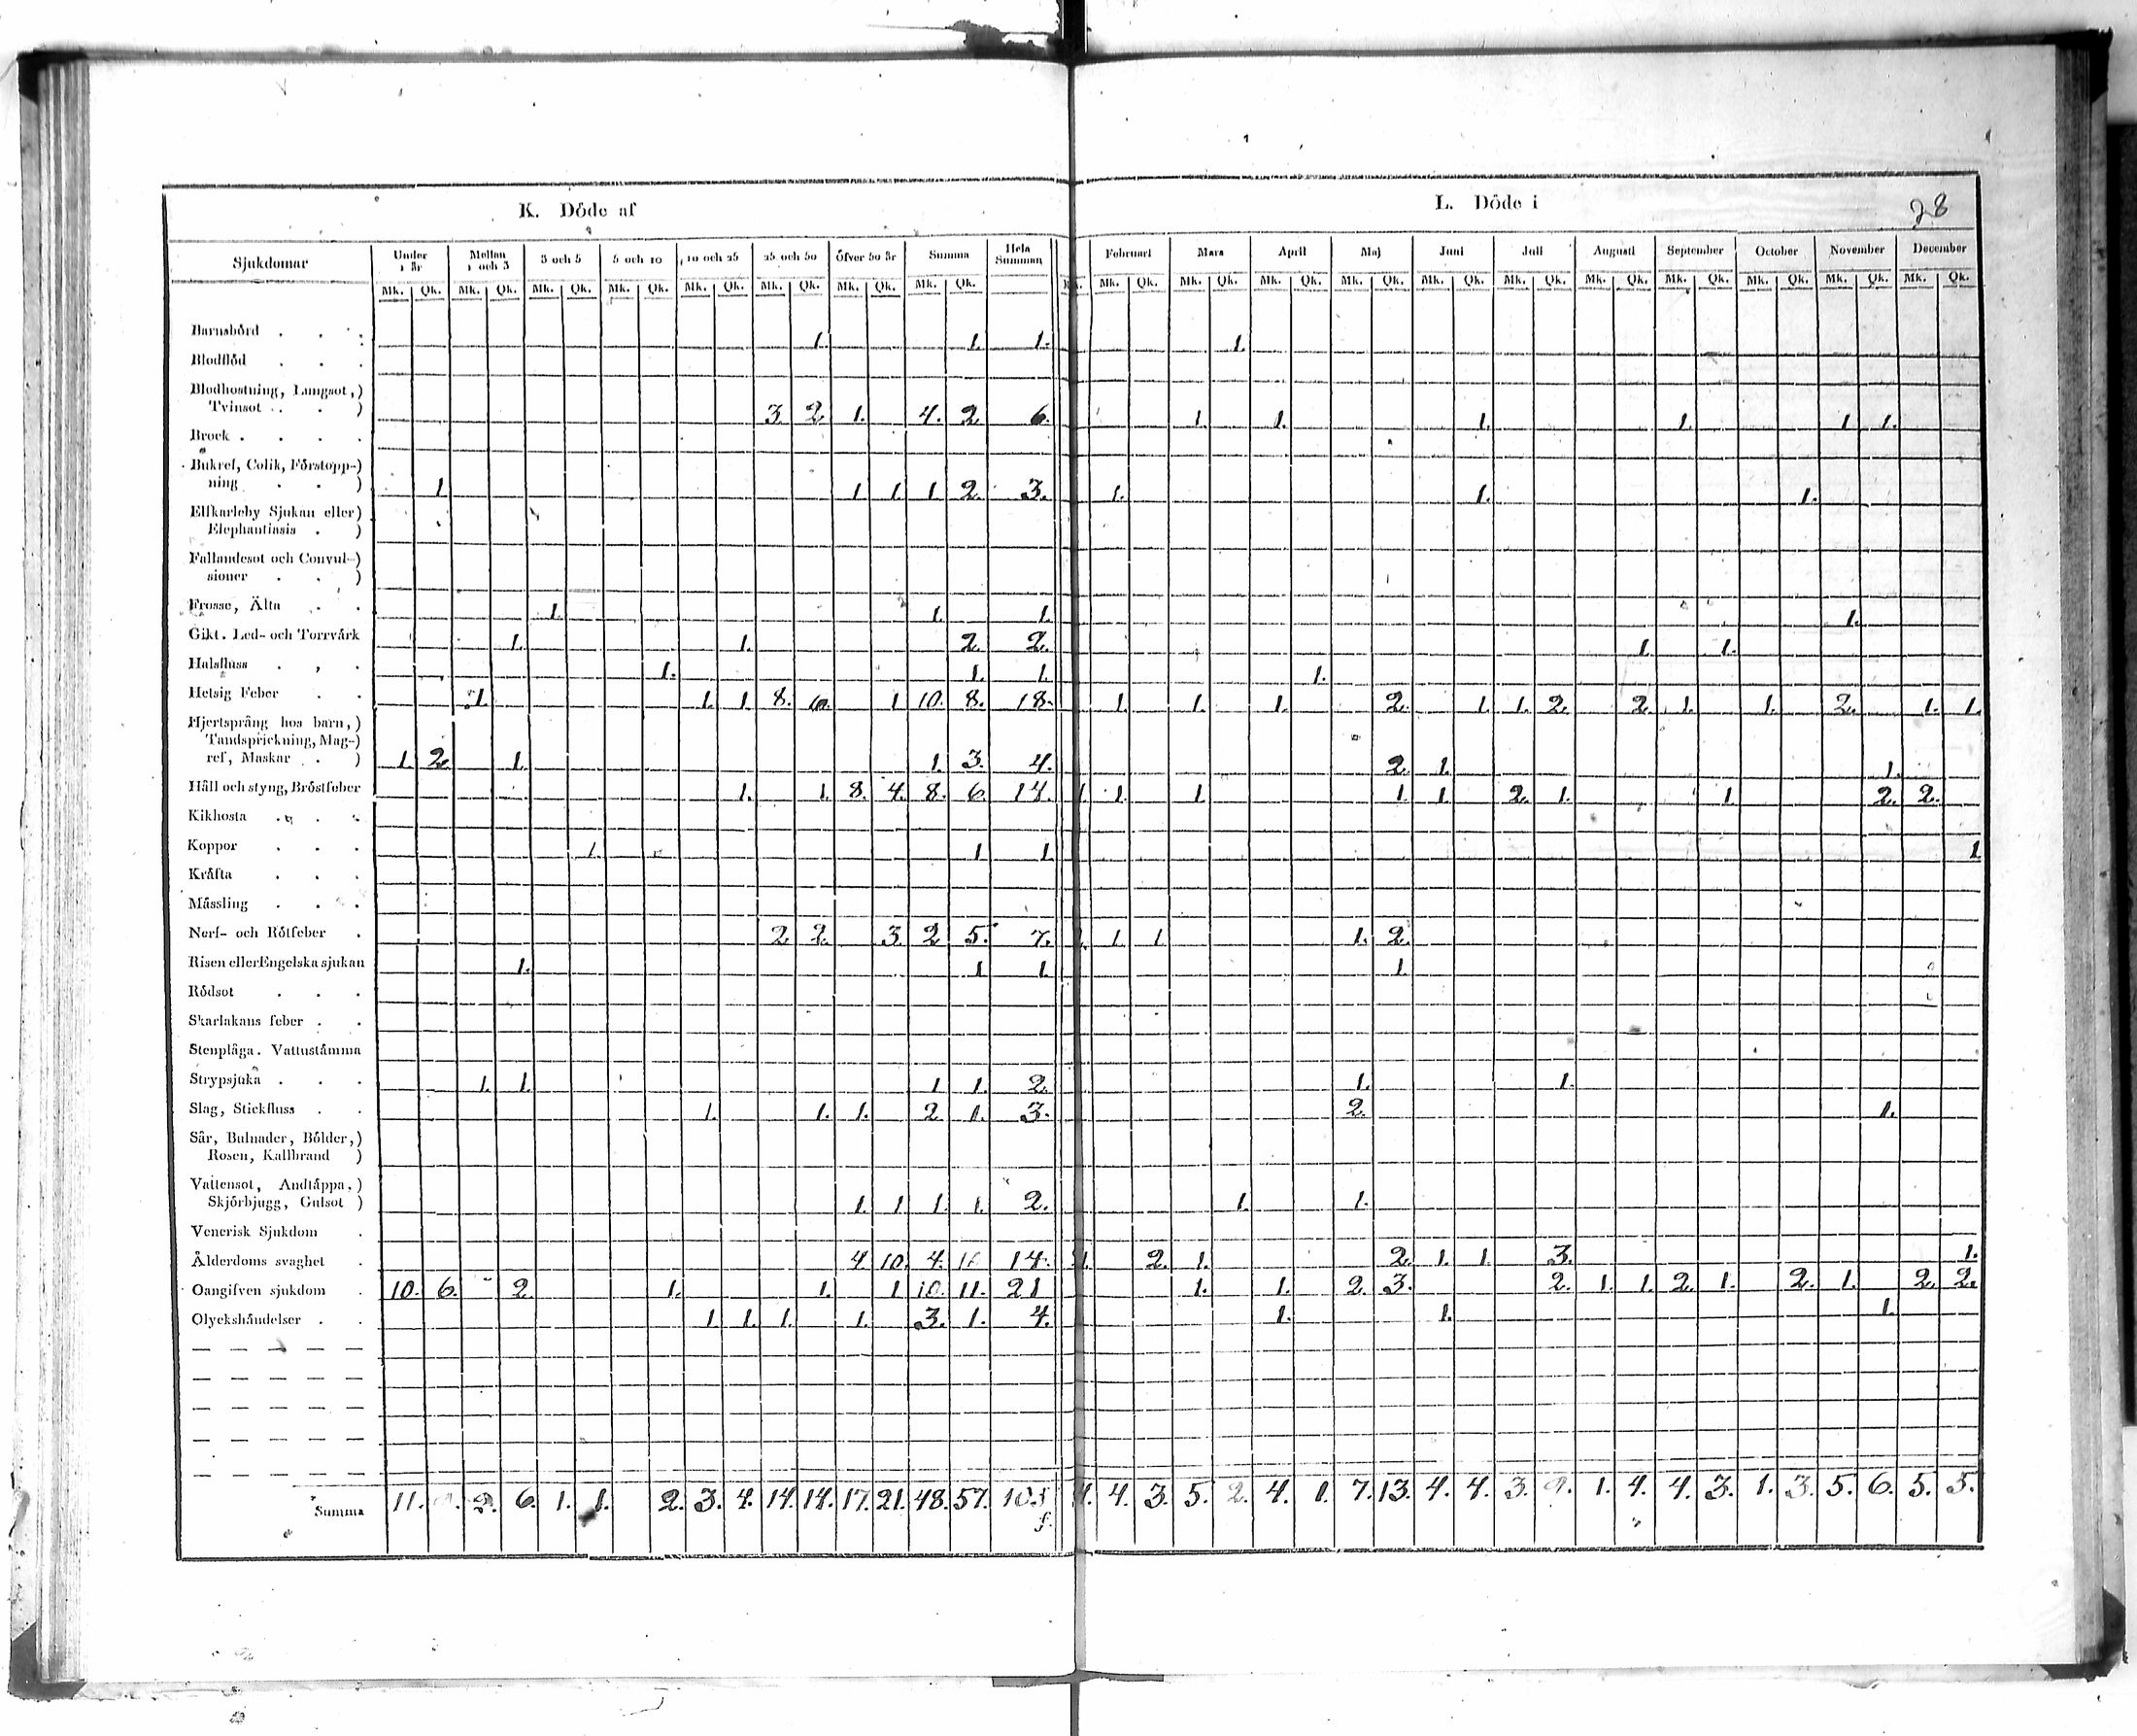 K. Döde af L. Döde i 28
Sjukdomar Under 1 år Mellan 1 och 3 3 och 5 5 och 10 10 och 25 25 och 50 Öfver 50 år Summa Hela Summan Februari Mars April Maj Juni Juli Augusti September October November December
Mk. Qk. Mk. Qk. Mk. Qk. Mk. Qk. Mk. Qk. Mk. Qk. Mk. Qk. Mk. Qk. Mk. Qk. Mk. Qk. Mk. Qk. Mk. Qk. Mk. Qk. Mk. Qk. Mk. Qk. Mk. Qk. Mk. Qk. Mk. Qk. Mk. Qk.
Barnsbörd . . . 1. 1. 1. 1.
Blodflöd . . .
Blodhostning, Lungsot,)
Tvinsot . . . ) 3. 2. 1. 4. 2. 6. 1. 1. 1. 1. 1. 1.
Brock . . . .
Bukref, Colik, Förstopp-)
ning . . ) 1. 1. 1. 1. 2. 3. 1. 1. 1.
Elfkarleby Sjukan eller)
Elephantiasis . )
Fallandesot och Convul-)
sioner . . )
Frosse, Älta . . 1. 1. 1. 1.
Gikt. Led- och Torrvärk 1. 1. 2. 2. 1. 1.
Halsfluss . , . 1. 1. 1. 1.
Hetsig Feber . . 1. 1. 1. 8. 6. 1 10. 8. 18. 1. 1. 1. 2. 1. 1. 2. 2. 1. 1. 2. 1. 1.
Hjertsprång hos barn,)
Tandsprickning, Mag-)
ref, Maskar . ) 1. 2. 1. 1. 3. 4. 2. 1. 1.
Håll och styng, Bröstfeber 1. 1. 8. 4. 8. 6. 14. 1. 1. 1. 1. 1. 2. 1. 1. 2. 2.
Kikhosta . . .
Koppor . . . 1. 1 1 1
Kräfta . . .
Mässling . . .
Nerf- och Rötfeber . 2. 2. 3 2 5. 7. 1. 1. 1 1. 2.
Risen eller Engelska sjukan 1. 1 1. 1.
Rödsot . . .
Skarlakans feber . .
Stenplåga. Vattustämma
Strypsjuka . . . 1. 1. 1 1. 2. 1. 1.
Slag, Stickfluss . . 1. 1. 1. 2 1. 3. 2. 1.
Sår, Bulnader, Bölder,)
Rosen, Kallbrand )
Vattensot, Andtäppa,)
Skjörbjugg, Gulsot ) 1. 1 1. 1. 2. 1. 1.
Venerisk Sjukdom .
Ålderdoms svaghet . 4 10. 4. 10. 14. 2. 1. 2. 1. 1. 3. 1.
Oangifven sjukdom . 10. 6. 2. 1. 1. 1 10. 11. 21 1. 1. 2. 3. 2. 1. 1. 2. 1. 2. 1. 2. 2.
Olyckshändelser . . 1. 1. 1. 1. 3. 1. 4. 1. 1. 1.
Summa 11. 2. 6. 1. 1. 2. 3. 4. 14. 14. 17. 21. 48. 57. 105 4. 3. 5. 2. 4. 1. 7. 13. 4. 4. 3. 9. 1. 4. 4. 3. 1. 3. 5. 6. 5. 5.